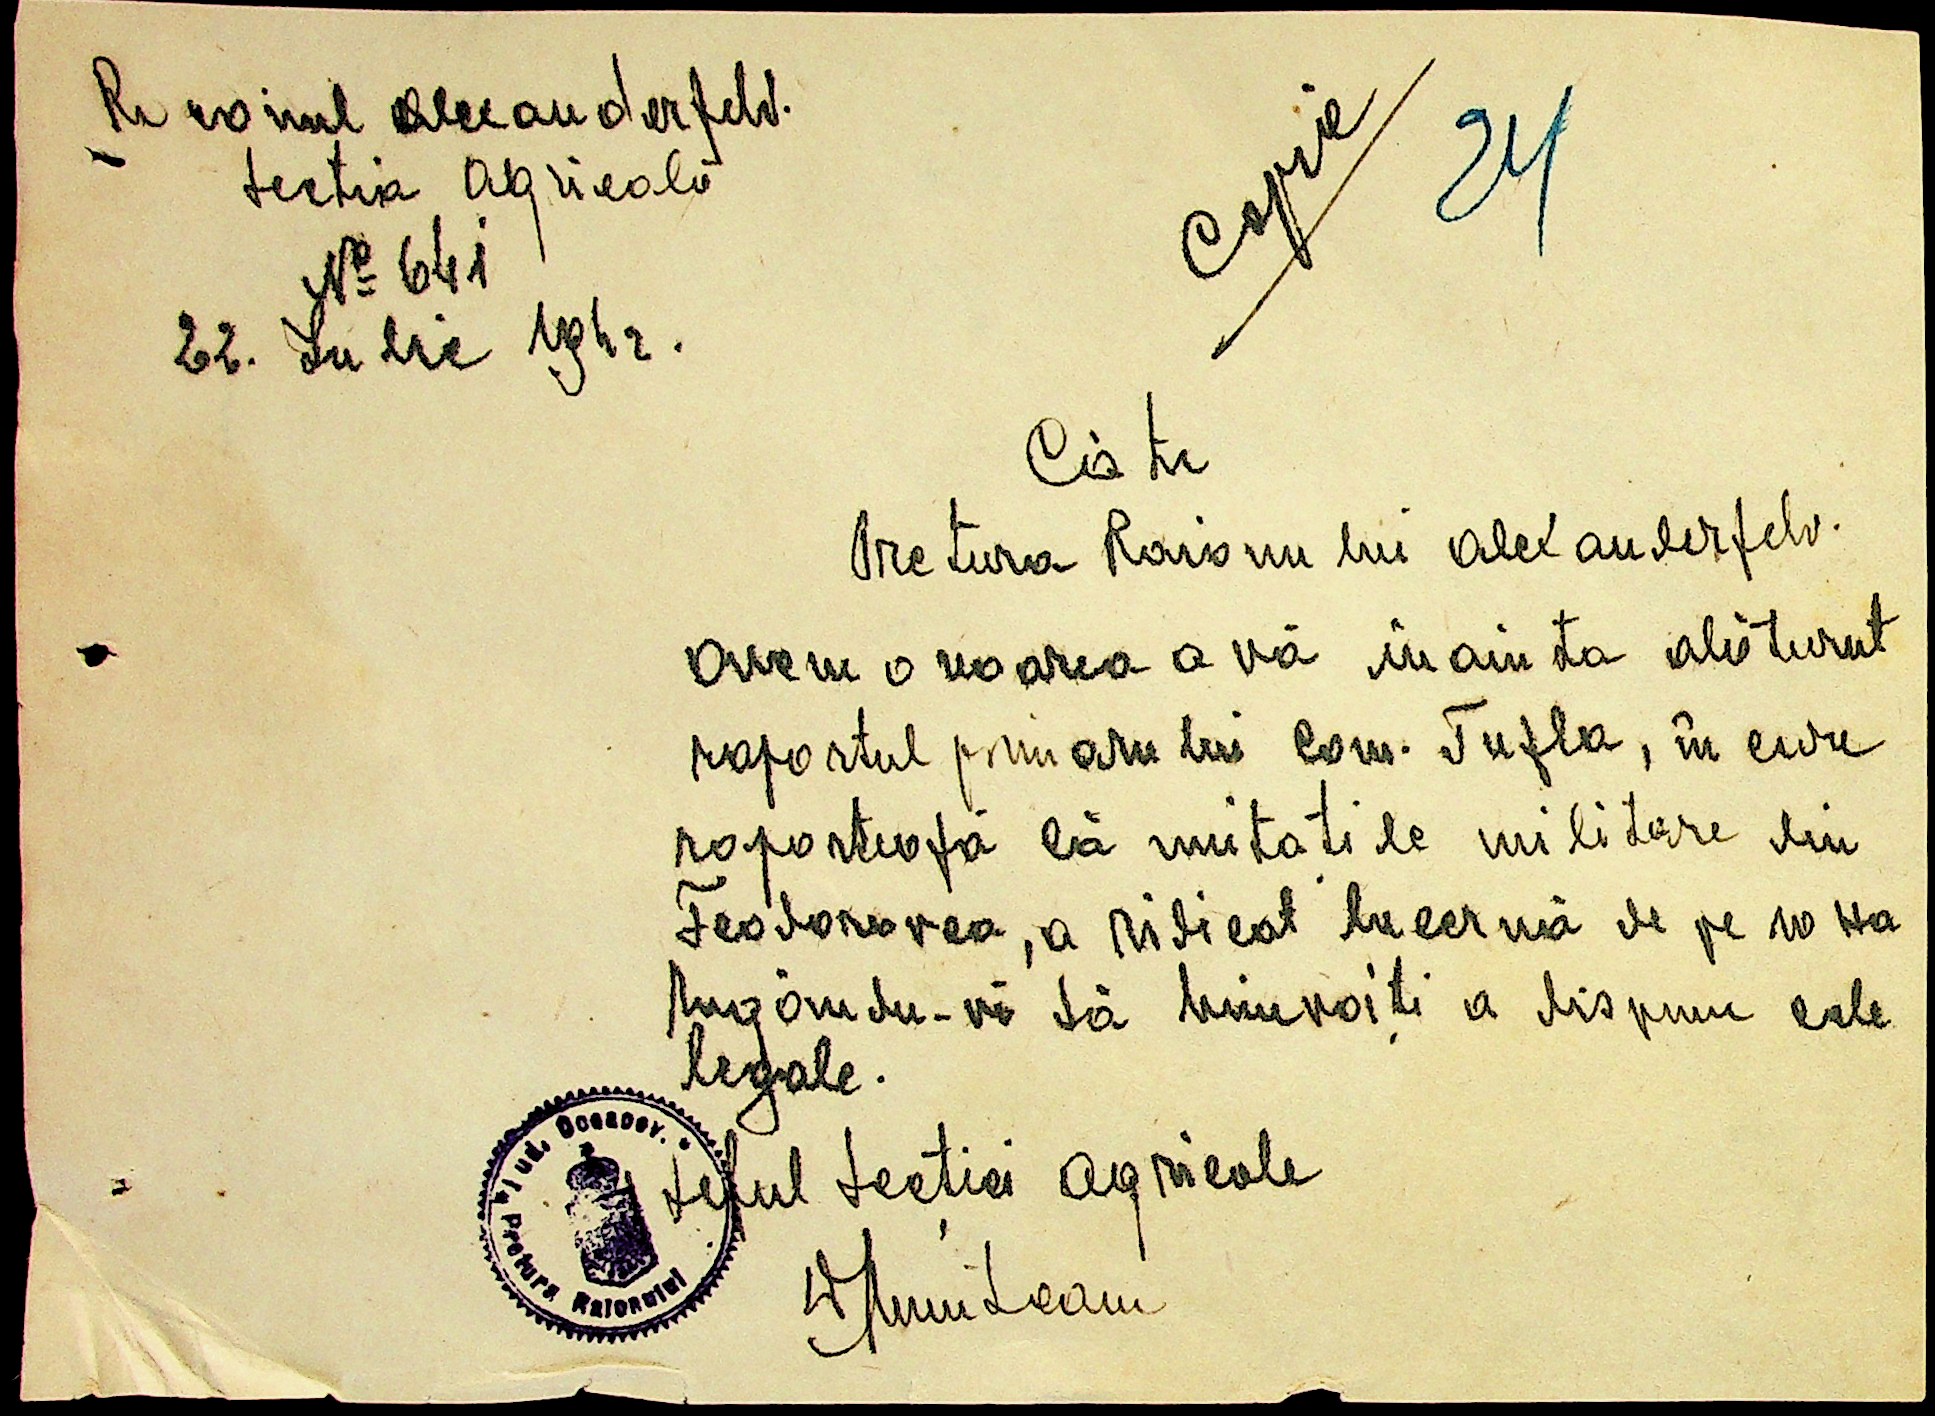 Raionul Alexanderfeld.
Secția Agricolă
№ 641
22. Iulie 1942.
Copie
24
Către
Pretura Raionului Alexanderfeld.
Avem onoarea a vă înainta alăturat
raportul primarului Com. Tufla, în care
raportează că unitățile militare din
Teodorovca, a ridicat lucernă de pe 10 Ha
Rugându-vă să binevoiți a dispune cele
legale.
Șeful Secției Agricole
Jud. Oceacov.
Pretura Raionului